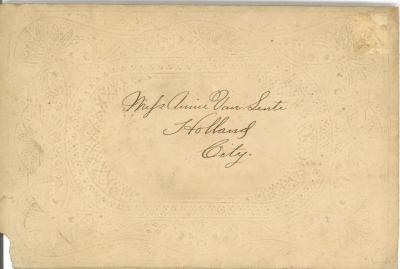 Miss Annie Van Lente
Holland
City.